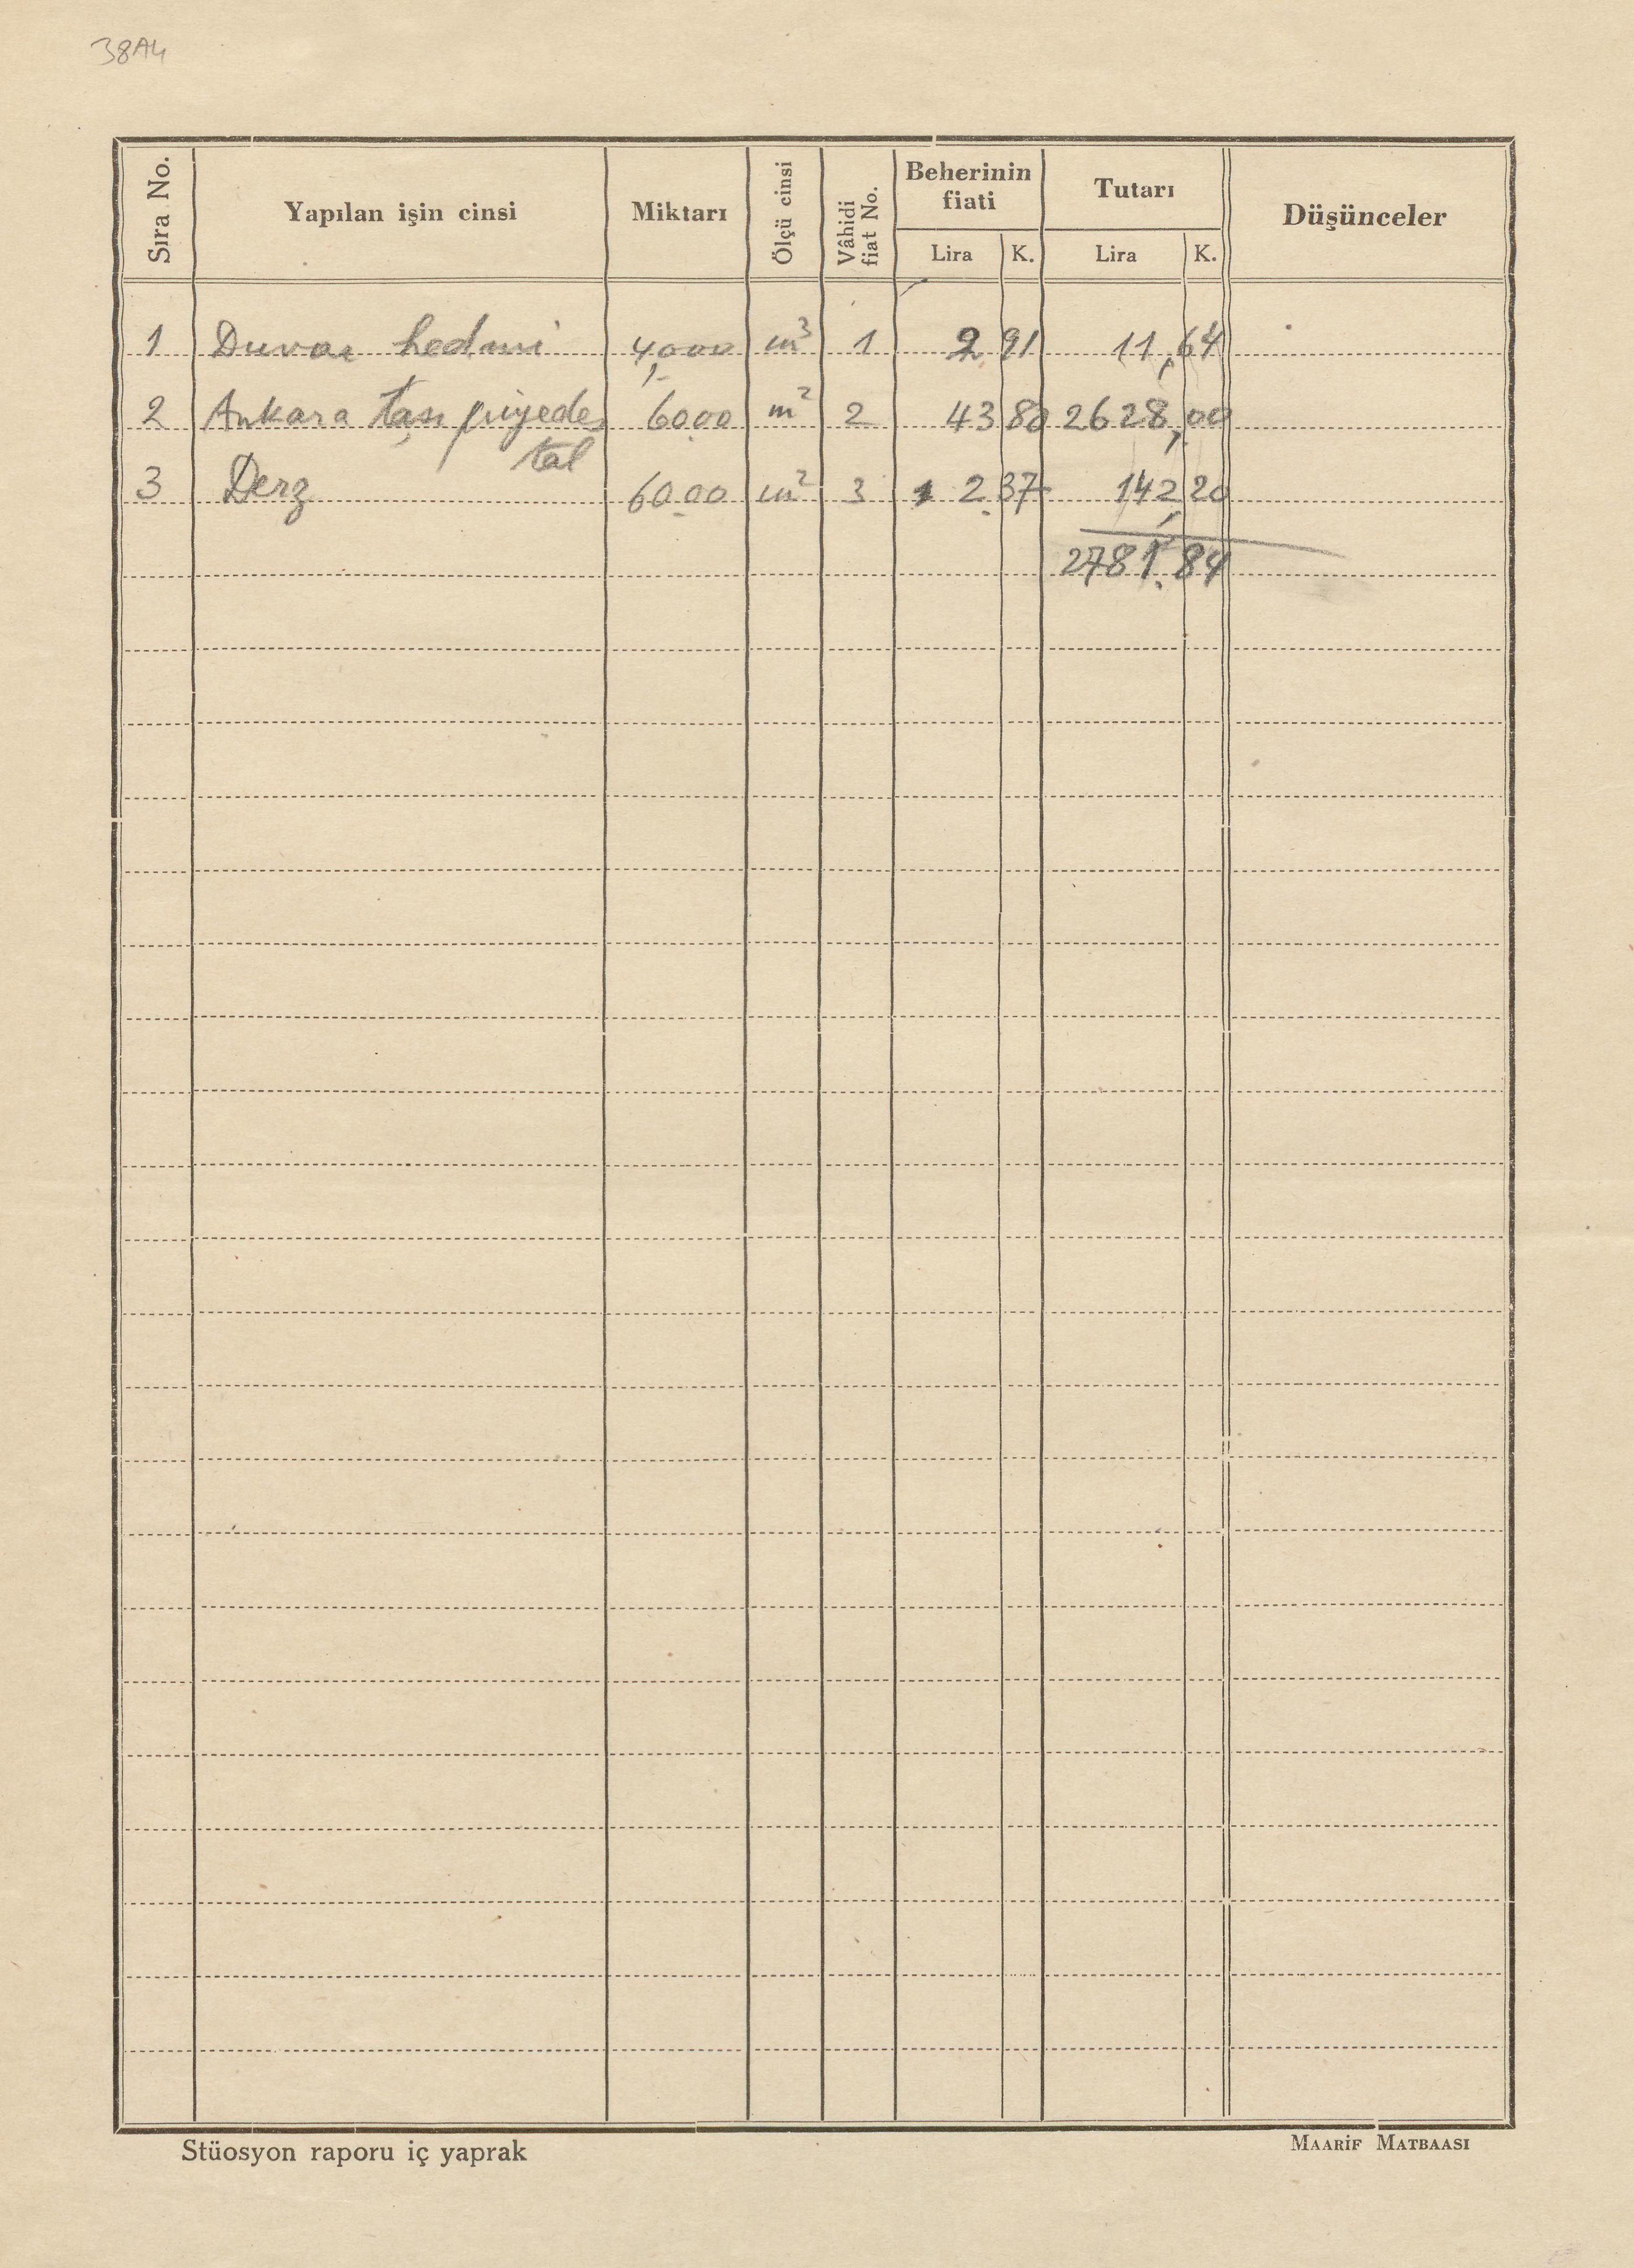 38A4
Sıra No. Yapılan işin cinsi Miktarı Ölçü cinsi Vâhidi fiat No. Beherinin fiati Tutarı Düşünceler
Lira K. Lira K.
1 Duvar hedmi 4,000 m³ 1 2 91 11,64
2 Ankara taşı piyedes 60.00 m² 2 43 80 2628,00
tal
3 Derz 60.00 m² 3 2.37 142,20
2781.84
Stüosyon raporu iç yaprak
MAARİF MATBAASI